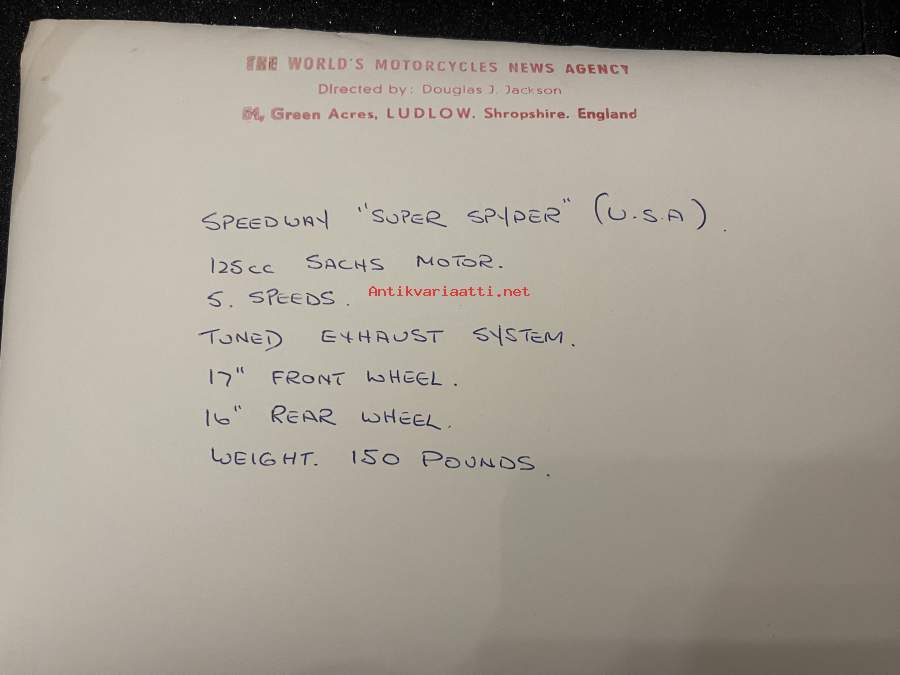 THE WORLD'S MOTORCYCLES NEWS AGENCY
Directed by: Douglas J. Jackson
Green Acres, LUDLOW. Shropshire. England
SPEEDWAY "SUPER SPYDER" (U.S.A).
125cc SACHS MOTOR.
5. SPEEDS.
Antikvariaatti.net
TUNED EXHAUST SYSTEM.
17" FRONT WHEEL.
16" REAR WHEEL.
WEIGHT. 150 POUNDS.